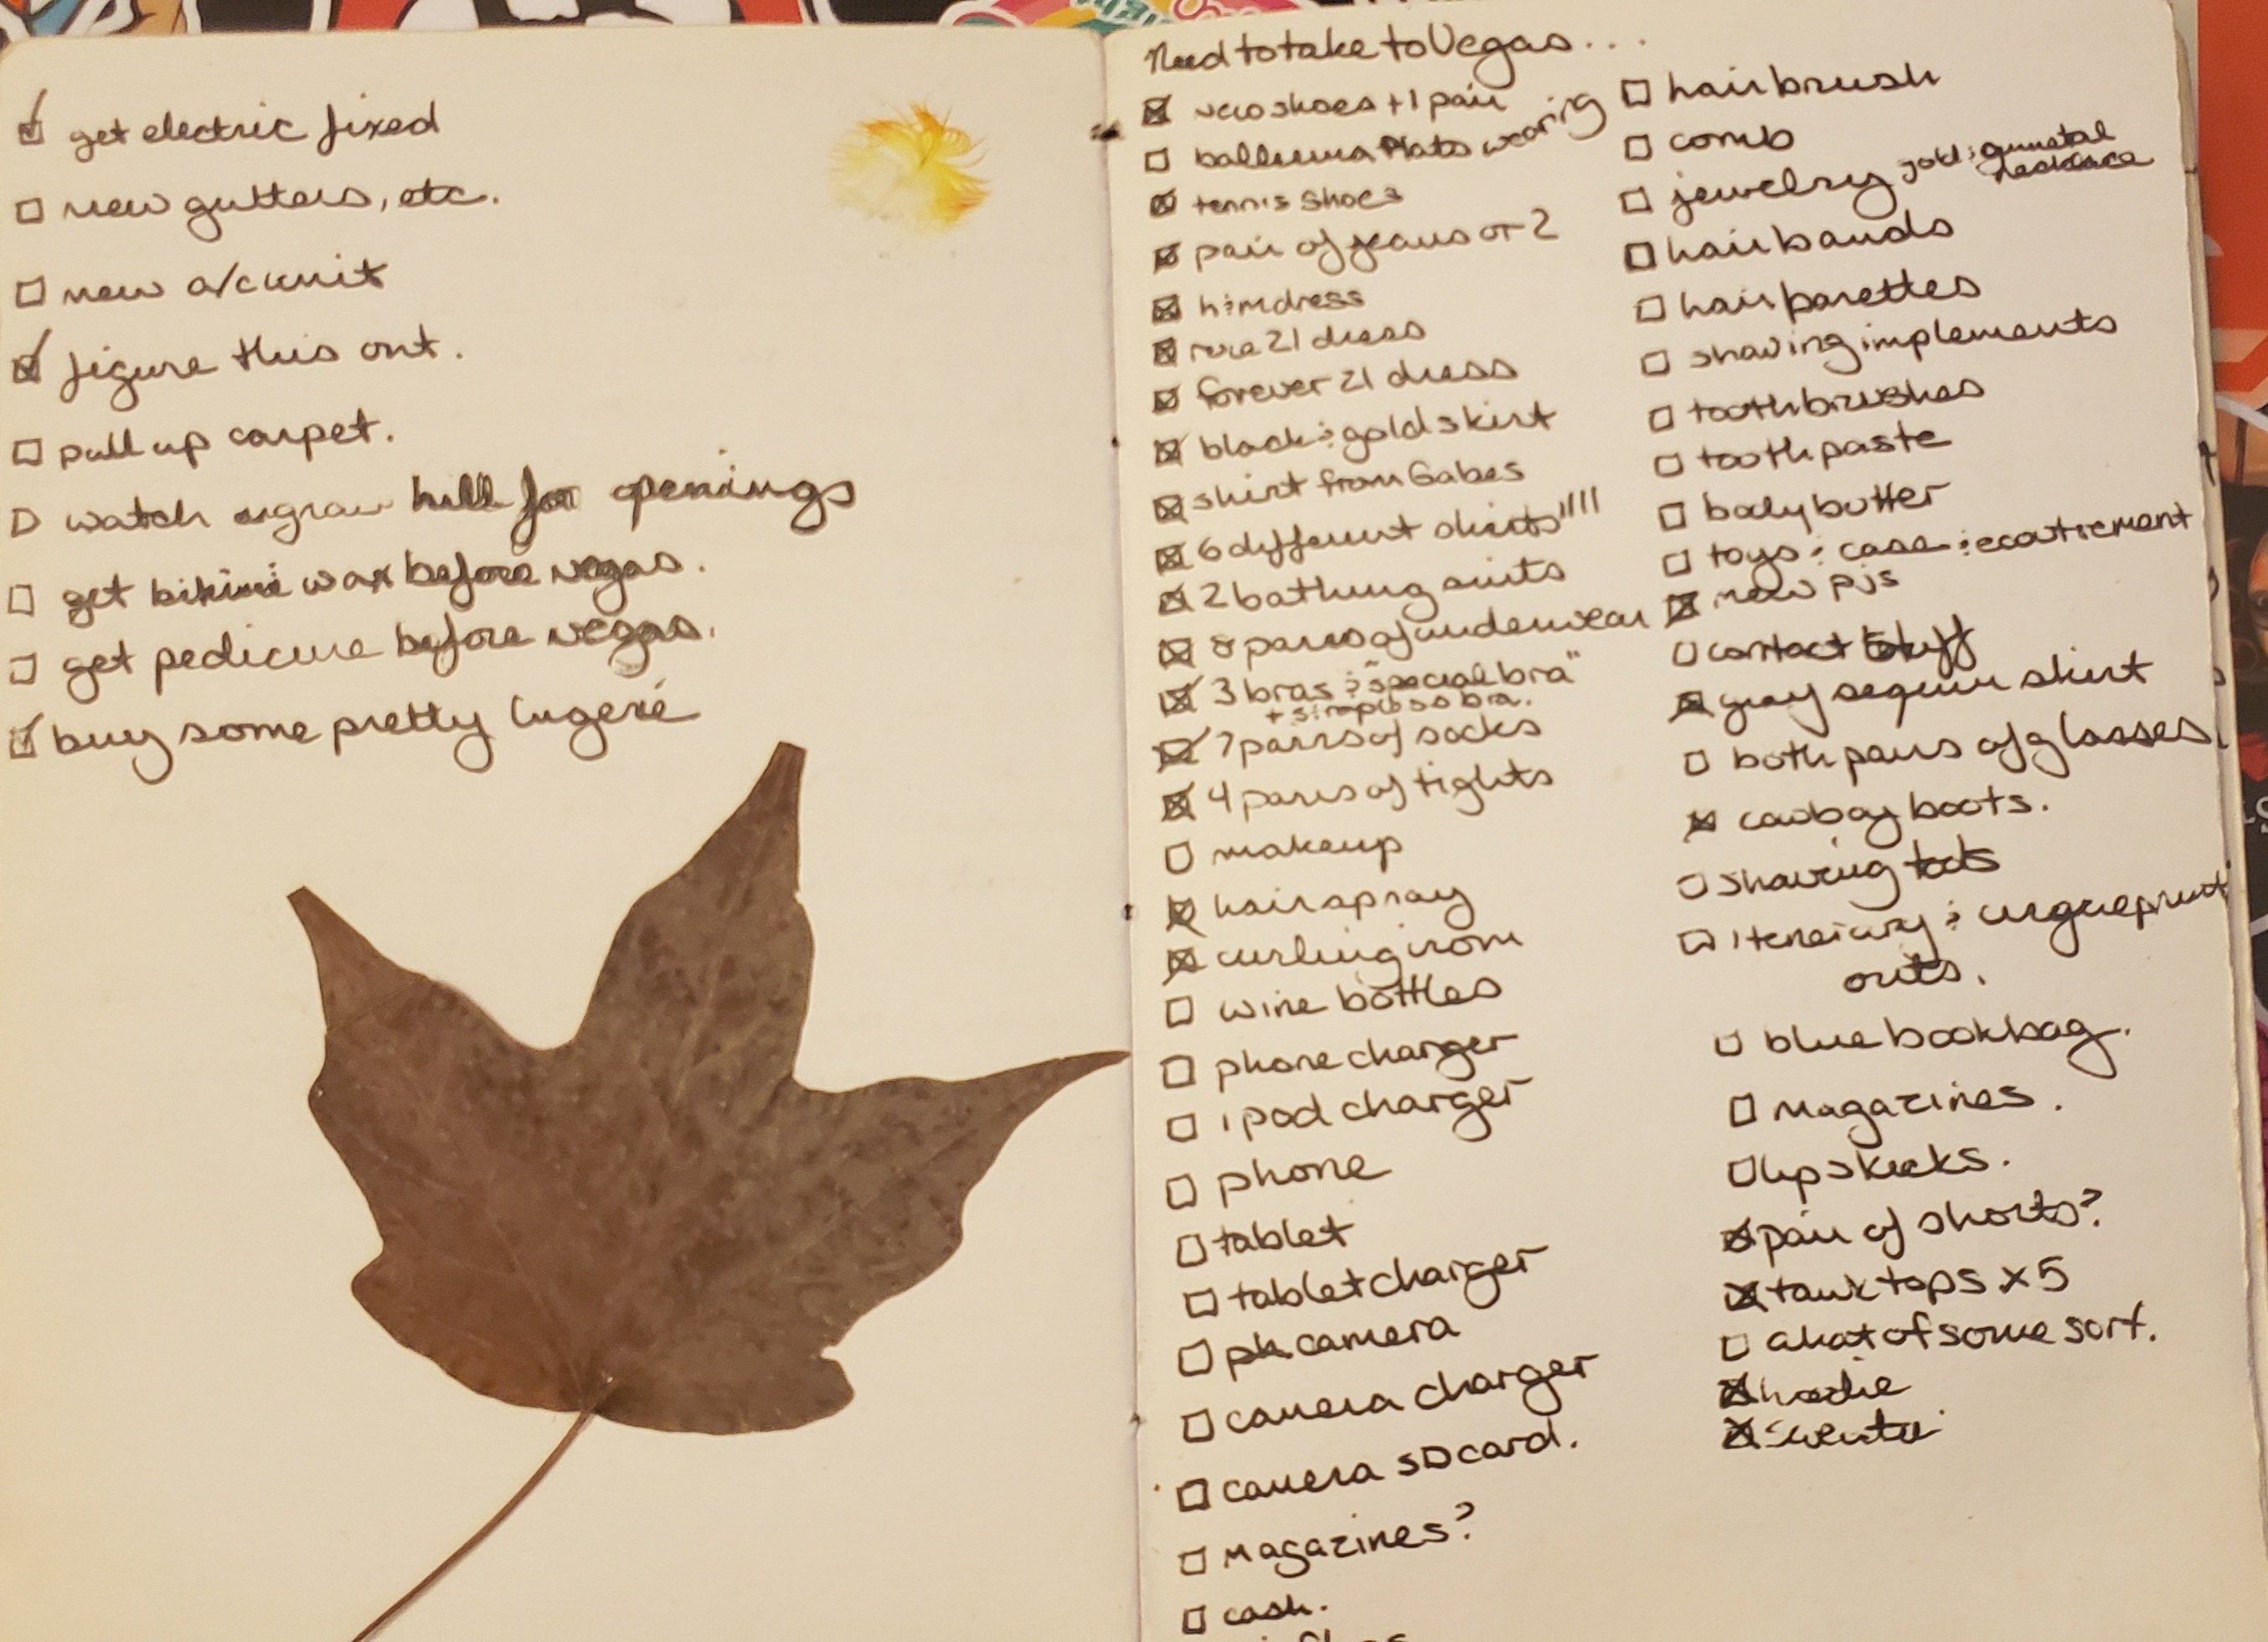 get electric fixed
new gutters, etc.
new a/c unit
figure this out.
pull up carpet.
watch hill for openings
get bikini wax before vegas.
get pedicure before vegas.
buy some pretty lingerie
Need to take to Vegas...
new shoes + 1 pair
ballerina flats wearing
tennis shoes
pair of jeans or 2
h&m dress
rue 21 dress
forever 21 dress
black & gold skirt
shirt from Gabes
6 different shirts
2 bathing suits
8 pairs of underwear
3 bras & "special bra"
+ strapless bra.
7 pairs of socks
4 pairs of tights
makeup
hairspray
curling iron
wine bottles
phone charger
ipod charger
phone
tablet
tablet charger
camera
camera charger
camera SD card.
magazines?
cash.
hairbrush
comb
jewelry gold & gunmetal
necklace
hairbands
hair barettes
shaving implements
toothbrushes
toothpaste
body butter
toys & case &
new pjs
contact stuff
gray sequin shirt
both pairs of glasses
cowboy boots.
shaving tools
iteneiary & print
outs.
blue bookbag.
magazines.
lipsticks.
pair of shorts?
tank tops x 5
a hat of some sort.
hoodie